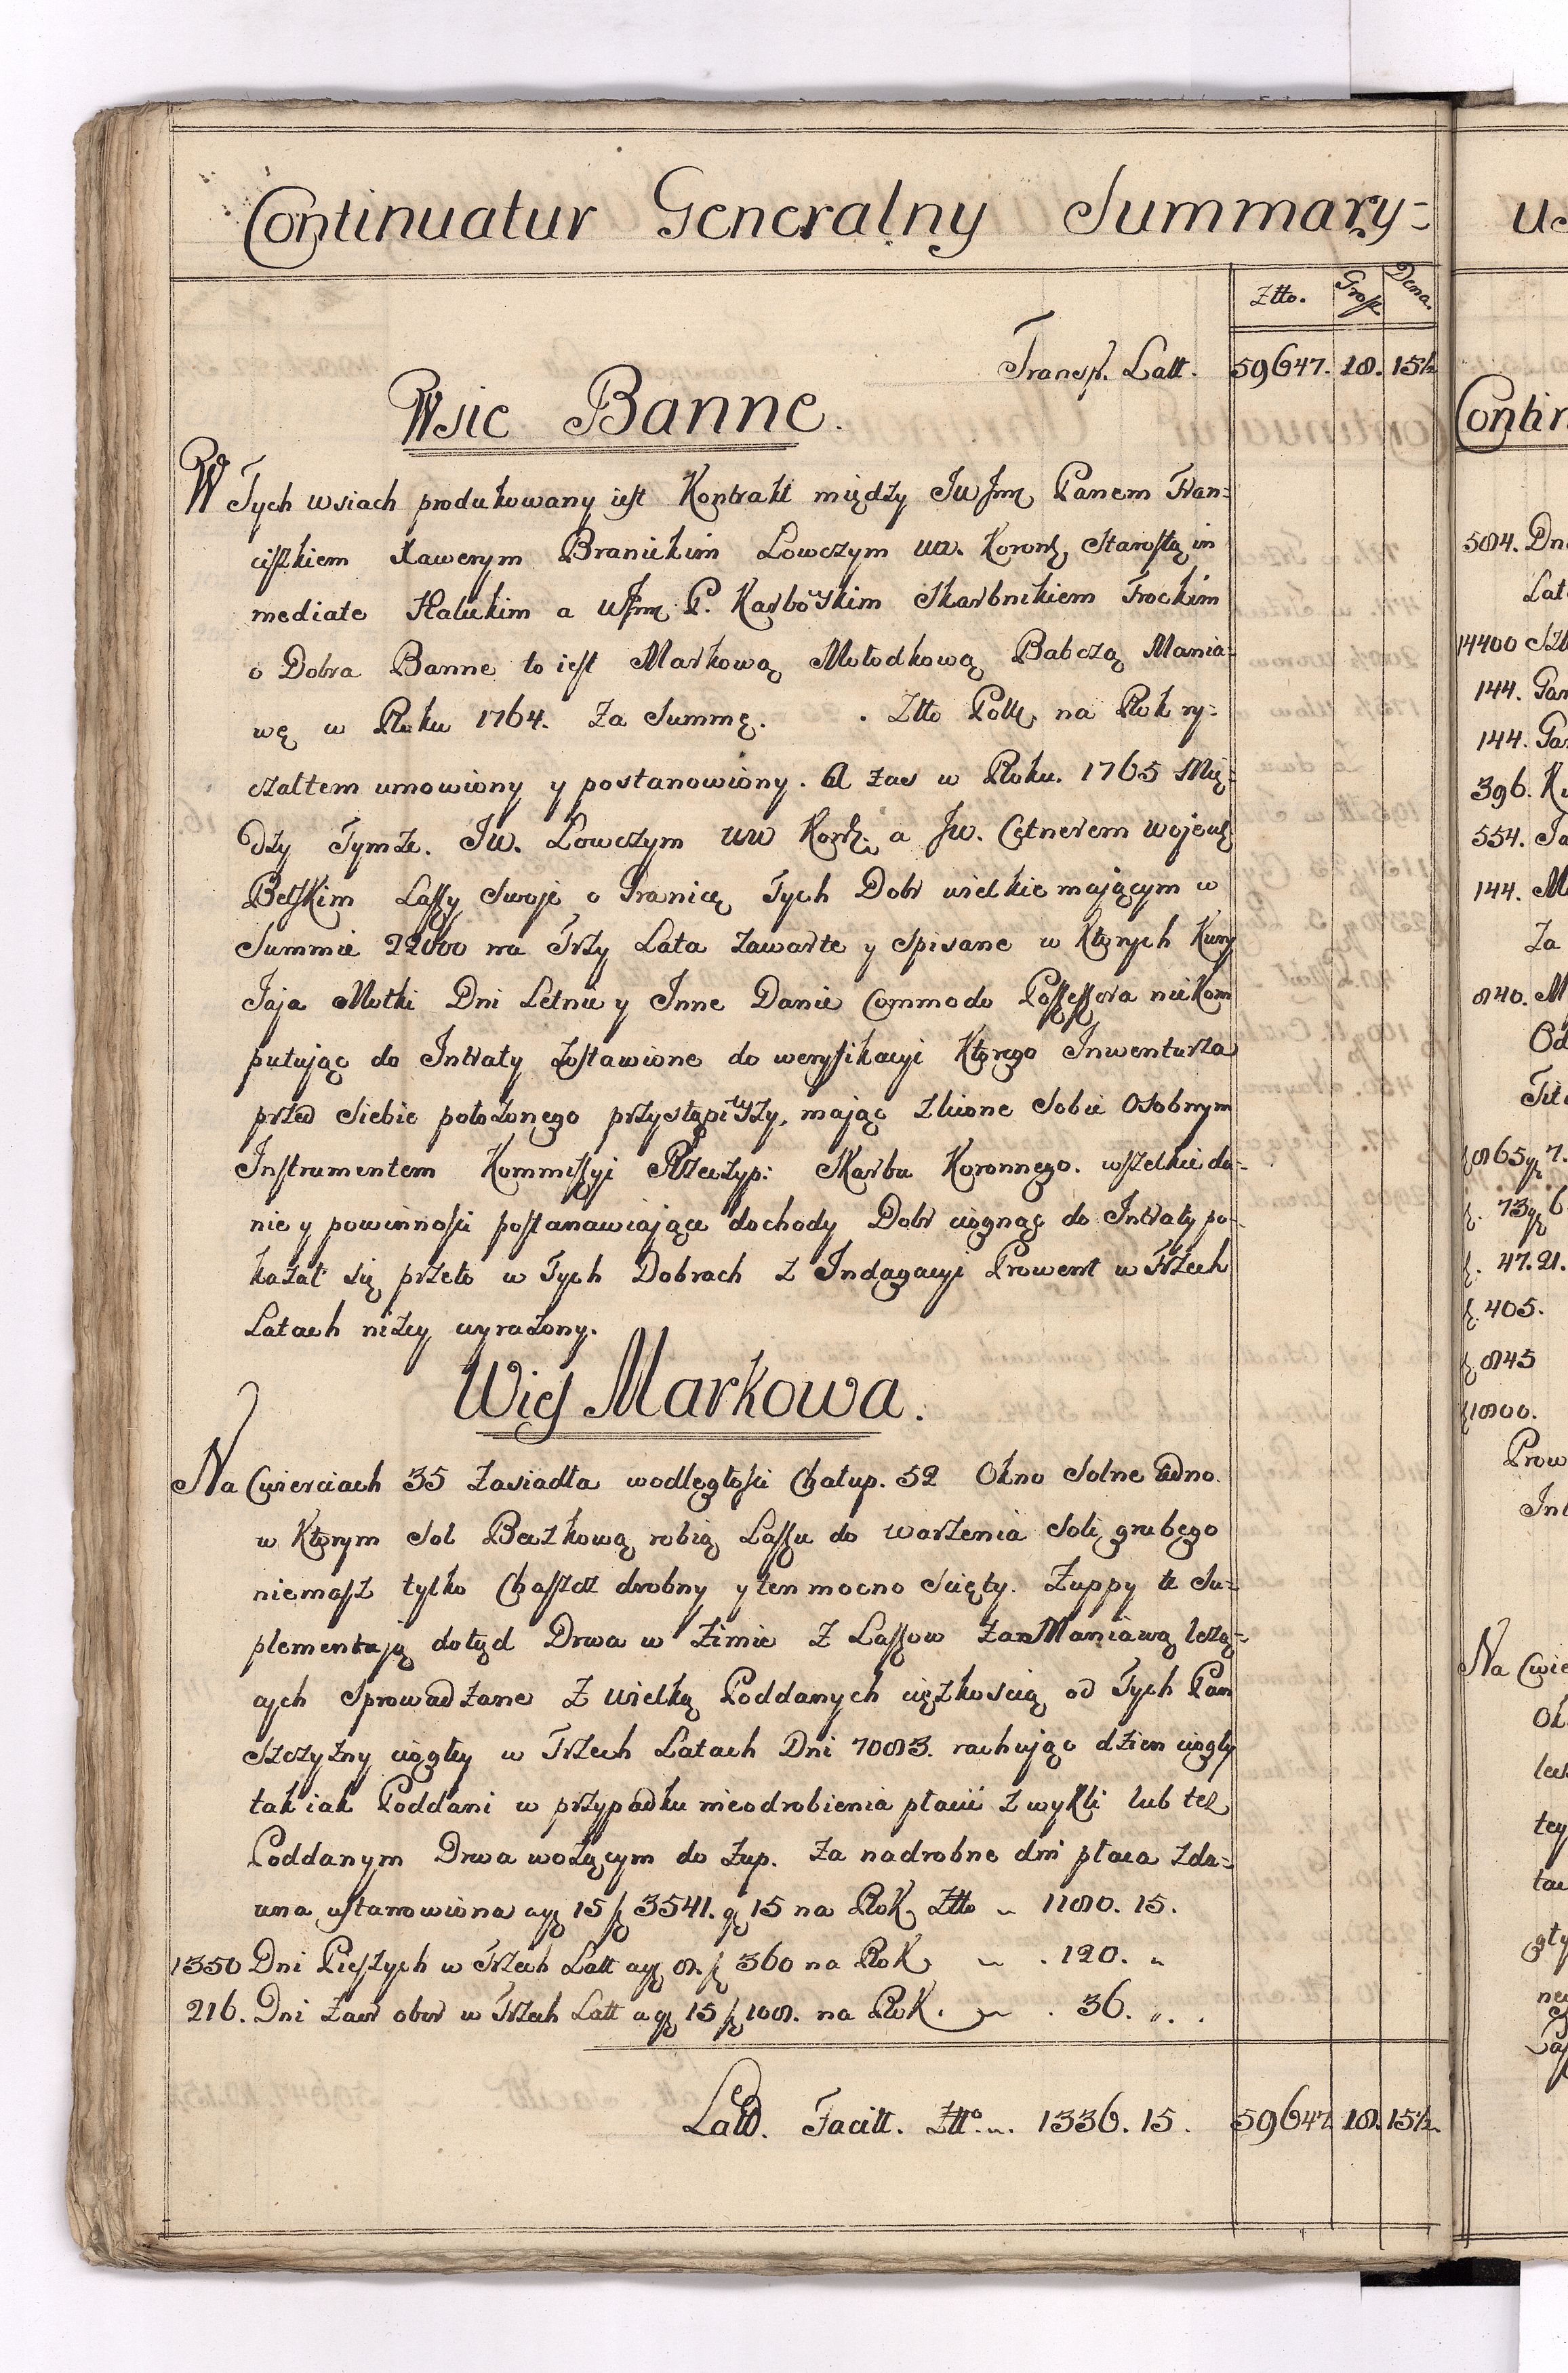 Continuatur Generalny Summary=
Ztto. Grosz. Dena.
Transp. Latt. 59647. 18. 15½
Wsie Banne.
W Tych wsiach produkowany iest Kontrakt między JwJmę Panem Fran=
ciszkiem Xawerym Branickim Łowczym Koronę Starostą im
mediate Halickim a WJmę P. Karbowskim Skarbnikiem Trockim
o Dobra Banne to iest Markową Mołodkową Babczą Mania=
wę w Roku 1764. Za Summę. . Ztto Polę na Rok ry=
czałtem umowiony y postanowiony. A zas w Roku. 1765 Mię=
dzy Tymże. Jw. Łowczym a Jw. Cetnerem Wojewdę
Bełskim Lassy Swoje o Granicę Tych Dobr wielkie maiącym w
Summie 22000 na Trzy Lata zawarte y spisane w Których Kury
Jaja Motki Dni Letnie y Inne Danie Commodo Possessora nie Kom
putując do Intraty zostawione do weryfikacyi Którego Inwentarza
przed Siebie położonego przystąpiwszy, mając zlicone Sobie Osobnym
Instrumentem Kommissyi Rzeczyp: Skarbu Koronnego. wszelkie da=
nie y powinności postanawiające dochody Dobr ciągnąć do Intraty po=
kazał się przeto w Tych Dobrach z Indagacyi Prowent w Trzech
Latach niżey wyrażony.
Wieś Markowa.
Na Cwierciach 35 Zasiadła wodległości Chałup. 52 Okno Solne iedno.
w Którym Sol Beczkową robią Lassu do warzenia Soli grubego
niemasz tylko Chaszcz drobny y ten mocno Scięty. Zuppy te Su=
plementują dotąd Drwa w Zimie Z Lassow Zan Maniawą leżą=
cych Sprowadzane Z wielką Poddanych ciężkoscią od Tych Pan
szczyzny ciągłey w Trzech Latach Dni 7083. rachując dzien ciągły
tak iak Poddani w przypadku nieodrobienia płacić zwykli lub też
Poddanym Drwa wożącym do Zup. Za nadrobne dni płaca zda=
wna ustanowiona agę 15 f 3541. gę 15 na Rok Ztto „ 1180. 15.
1350 Dni Pieszych w Trzech Latt agę 8. f 360 na Rok „ . 120. „
216. Dni Zaor obor w Trzech Latt a gę 15 f 108. na Rok. „ . 36. „.
Latt. Facitt. Ztto. „. 1336. 15. 59647. 18. 15½.
us
Contin
584. Dn
Lat
14400
144. Pa
144. Pa
396. K
554. Ja
144. M
Za
840. M
Od
865 gę 7.
f. 73 gę 6
f. 47. 21.
f. 405.
f. 845
f 1800.
Prow
Int
Na Cwie
Ok
tey
gły